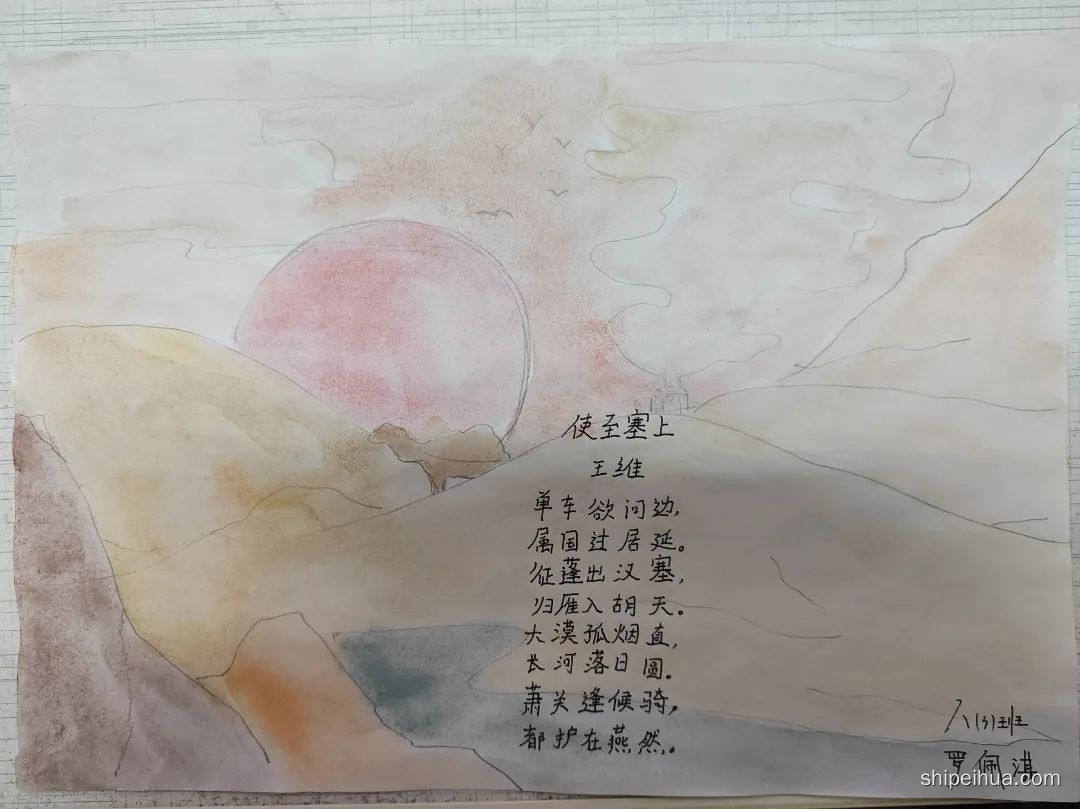 使至塞上
王维
单车欲问边,
属国过居延。
征蓬出汉塞,
归雁入胡天。
大漠孤烟直,
长河落日圆。
萧关逢候骑,
都护在燕然。
八(3)班
罗佩淇
shipeihua.com